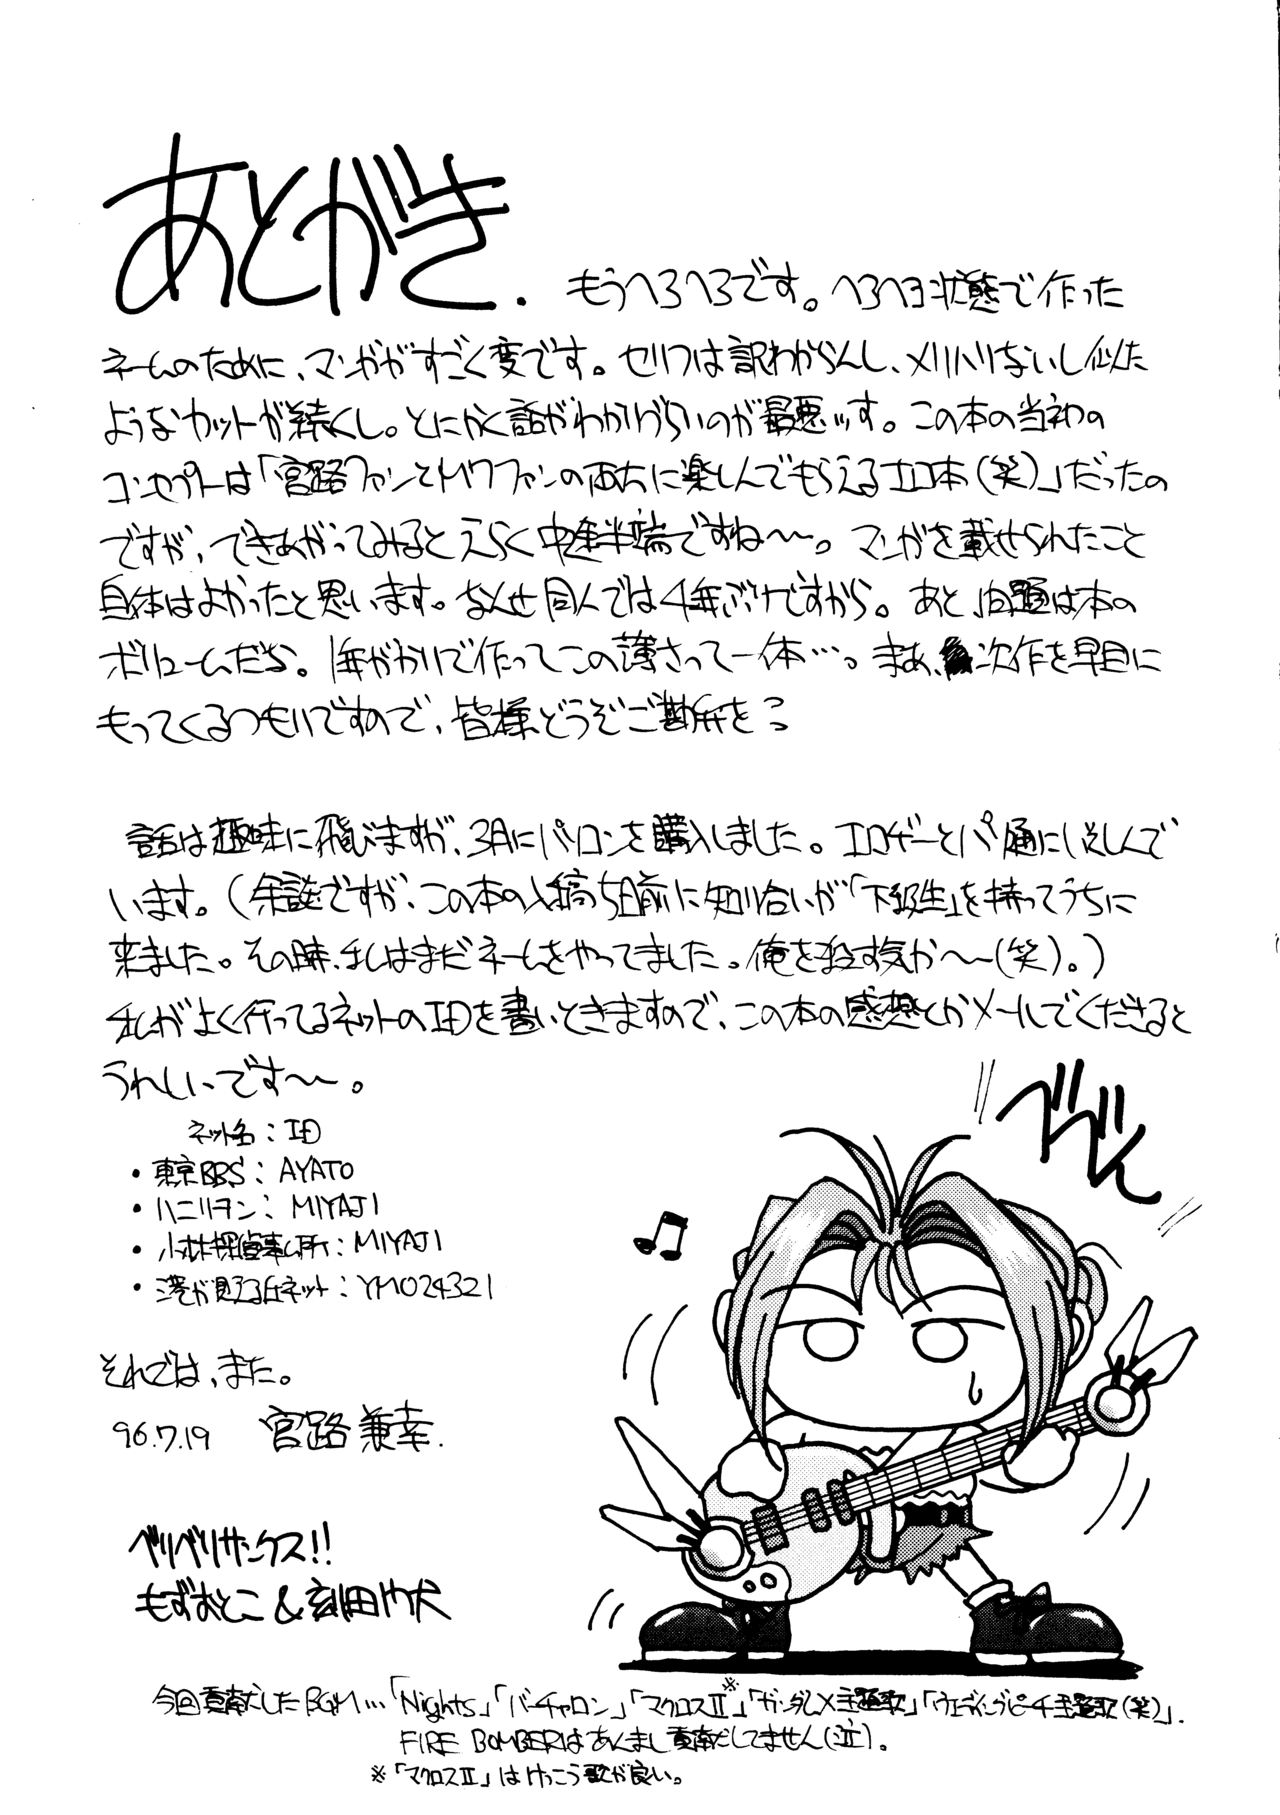 あとがき.
もうヘろヘろです。ヘろヘろ状態で作った
ネームのために、マンガがすごく変です。セリフは訳わからんし、メリハリないし似た
ようなカットが続くし。とにかく話がわかりづらいのが最悪ッす。この本の当初の
コンセプトは「宮路ファンとMWファンの両方に楽しんでもらえるエロ本(笑)」だったの
ですが、できあがってみるとえらく中途半端ですね〜〜。マンガを載せられたこと
自体はよかったと思います。なんせ同人では4年ぶりですから。あと、問題は本の
ボリュームだな。1年がかりで作ってこの薄さって一体…。まあ、次作を早目に
もってくるつもりですので、皆様どうぞご勘弁を
話は趣味に飛びますが、3月にパソコンを購入しました。エロゲーとパソ通にいそしんで
います。(余談ですが、この本の入稿5日前に知り合いが「下級生」を持ってうちに
来ました。その時、私はまだネームをやってました。俺を殺す気か〜〜(笑)。)
私がよく行ってるネットのIDを書いときますので、この本の感想とかメールでくださると
うれしいです〜〜。
ネット名:ID
・東京BBS:AYATO
・ハニリヲン:MIYAJI
・小林探偵事ム所:MIYAJI
・港が見える丘ネット:YM024321
それでは、また。
96.7.19 宮路兼幸.
ベリベリサンクス!!
もずおとこ&刻田ヤ犬
ベベベン
♪
今回貢献したBGM…「Nights」「バーチャロン」「マクロスⅡ※」「ガンダムX主題歌」「ウェディングピーチ主題歌(笑)」.
FIRE BOMBERはあんまし貢献してません(泣)。
※「マクロスⅡ」はけっこう歌が良い。